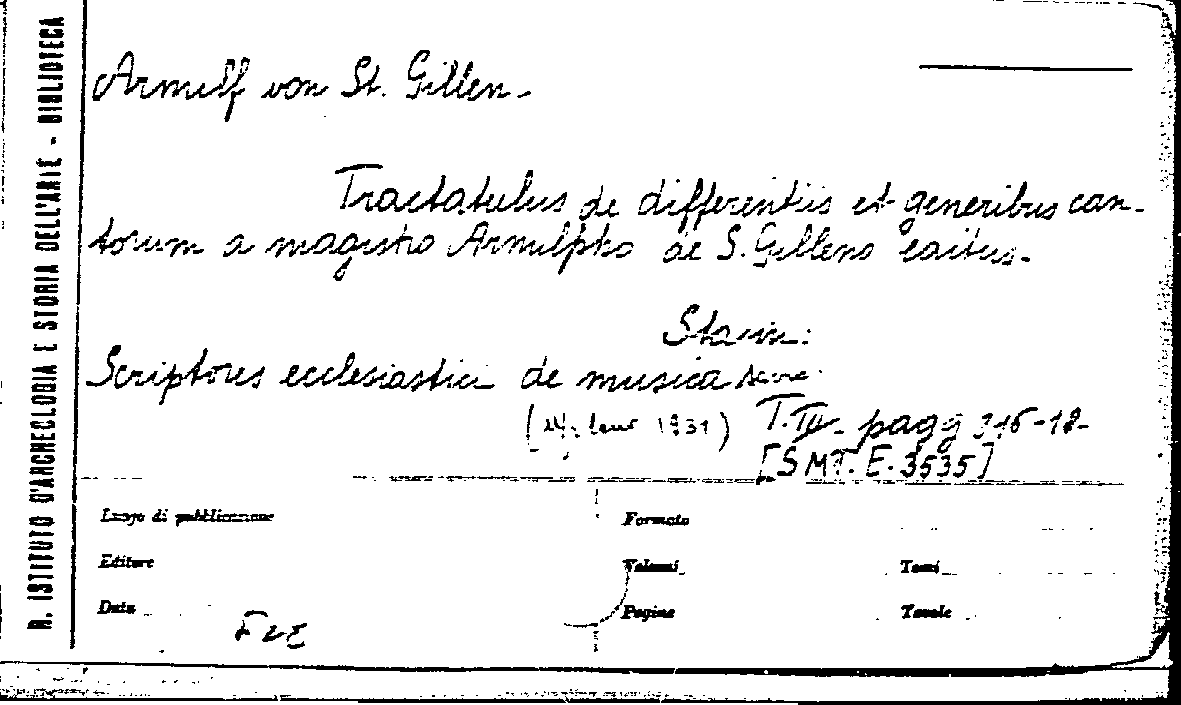 R. ISTITUTO D'ARCHEOLOGIA E STORIA DELL'ARTE - BIBLIOTECA
Arnulf von St. Gillen.
Tractatulus de differentiis et generibus can-
torum a magistro Arnulpho de S. Gilleno editus.
Scriptores ecclesiastici de musica sacra.
1931) T. III. pagg 316-18.
[SMT. E. 3535]
Luogo di pubblicazione
Formato
Editore
Volumi
Tomi
Data
Pagine
Tavole